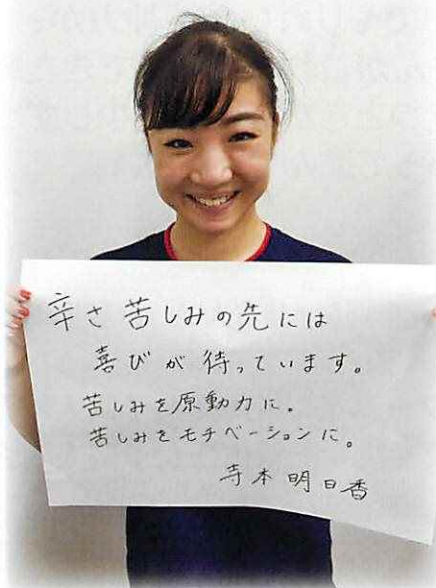 辛さ苦しみの先には
喜びが待っています。
苦しみを原動力に。
苦しみをモチベーションに。
寺本明日香